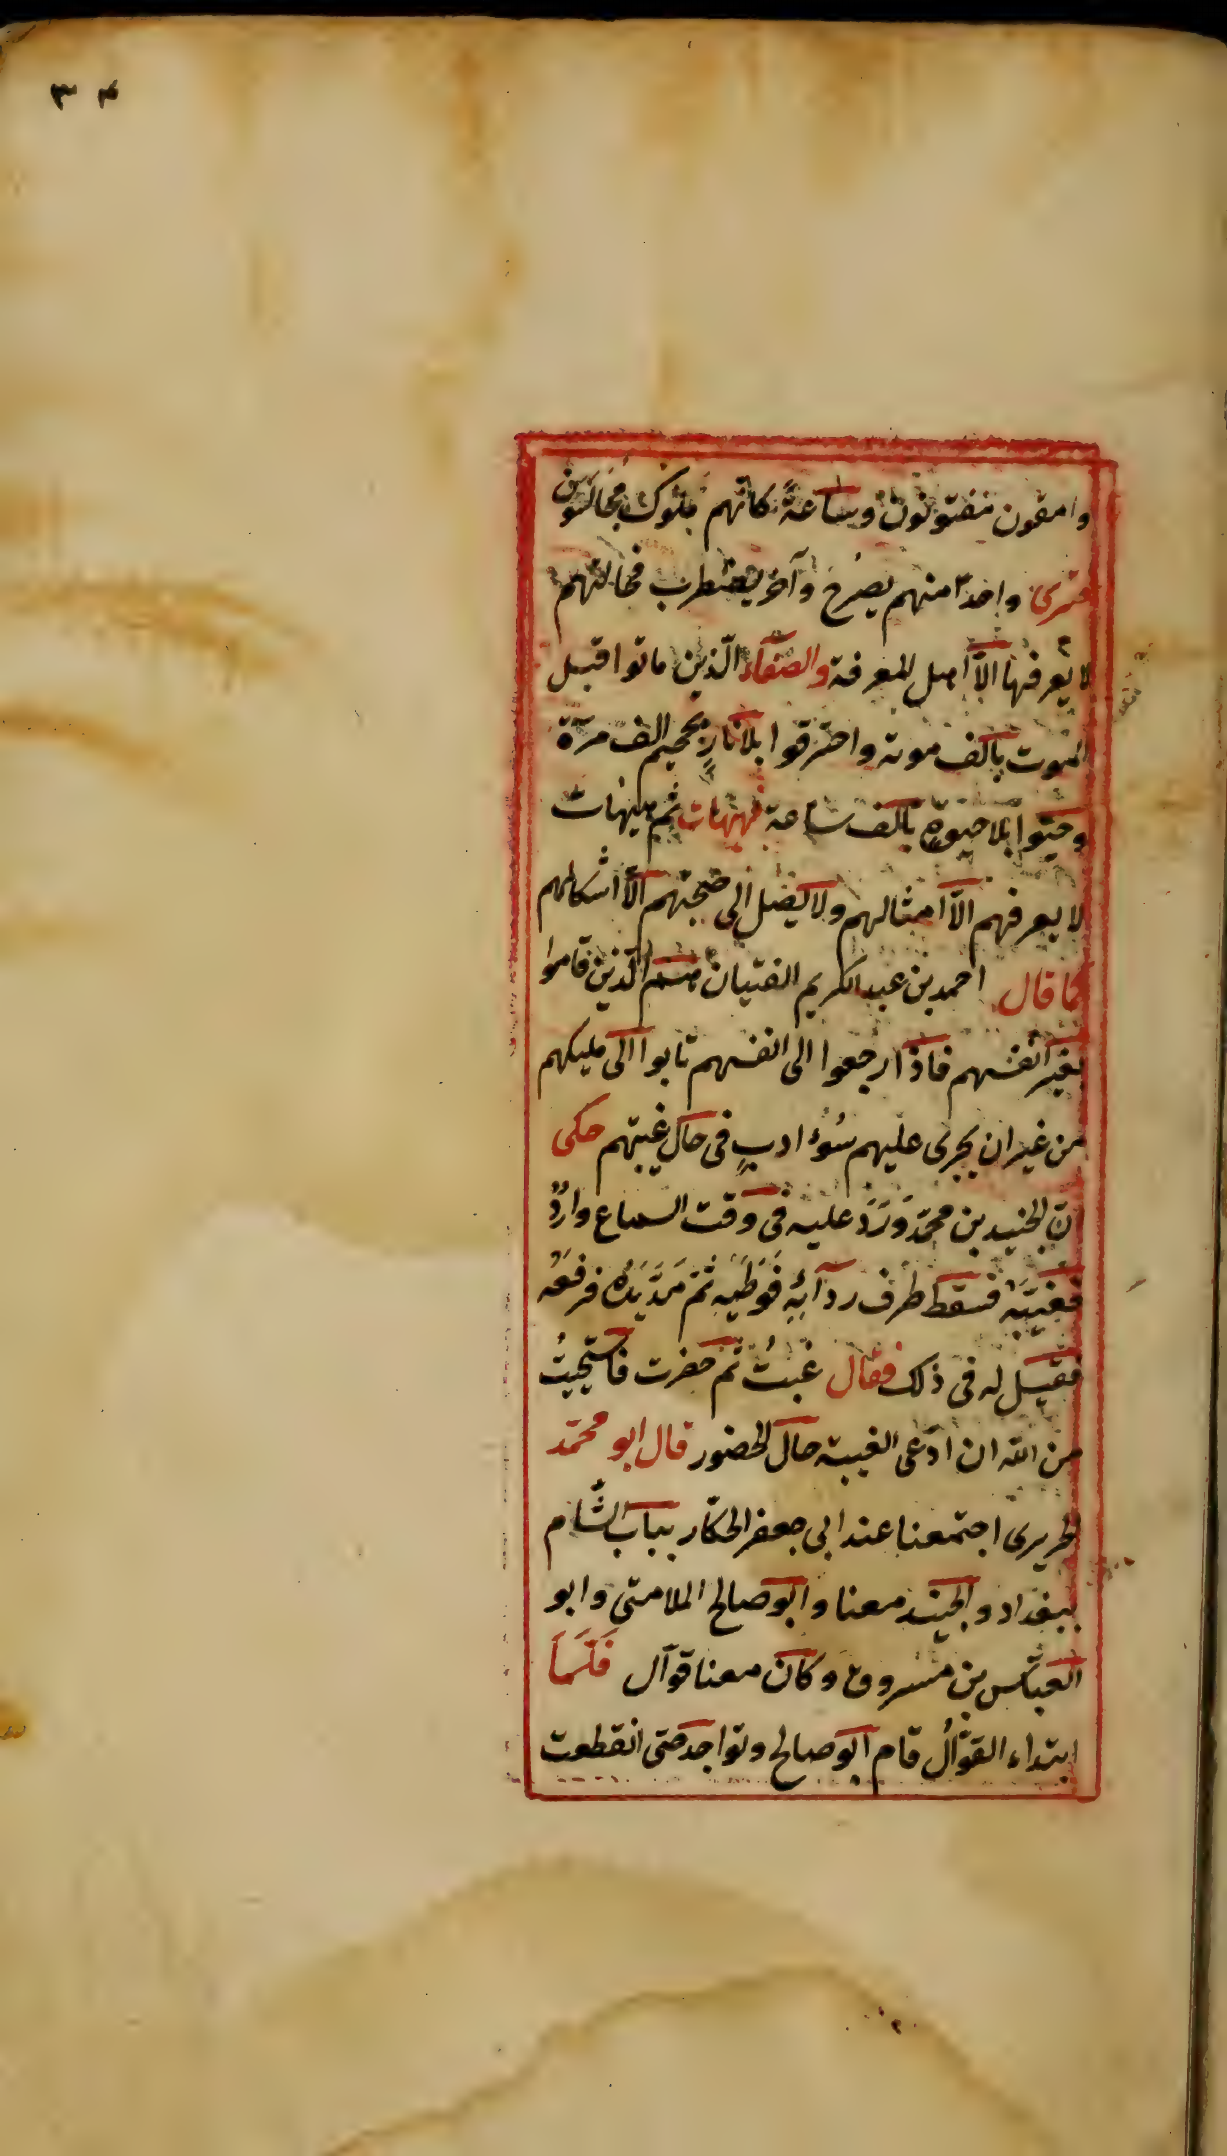 ٣٤
وامقون مفتونون وساعة كانّهم ملوك مجالسون
فترى واحدا منهم يصرخ وآخر يضطرب فحالتهم
لا يعرفها الّا اهل المعرفة والصفاء الّذين ماتوا قبل
الموت بالف موته واحترقوا بلا نارٍ بجحيم الف مرّة
وحيّوا بلا حيوةٍ بالف ساعة فهيهات ثم هيهات
لا يعرفهم الّا امثالهم ولا يصل الى صحبتهم الّا اشكالهم
كما قال احمد بن عبد الكريم الفتيان هم الّذين قاموا
بغير انفسهم فاذا رجعوا الى انفسهم تابوا الى مليكهم
من غير ان يجرى عليهم سُوء ادبٍ فى حال غيبتهم حكى
انّ الجنيد بن محمّد وَرَدَ عليه فى وقت السماع واردٌ
فغيّبَهُ فسقط طرف ردآئِهِ فَوَطَيَه ثمّ مَدَّ يَدَهُ فرفعَه
فقيل له فى ذلك فقال غبتُ ثم حضرت فاستحييتُ
من اللّه ان ادّعى الغيبة حال الحضور قال ابو محمّد
الحريرى اجتمعنا عند ابى جعفر الحكّار بباب الشّام
ببغداد والجنيد معنا وابو صالح الملامتى وابو
العبّاس بن مسروق وكان معنا قوّال فَلَمّا
ابتداء القوّالُ قام ابو صالح وتواجد حتى انقطعت